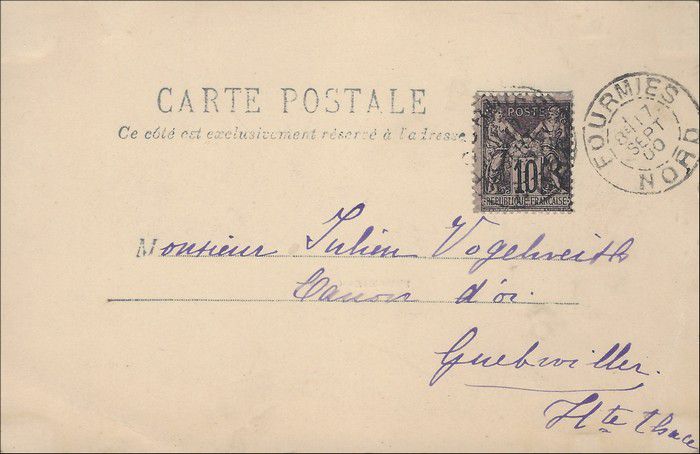 CARTE POSTALE
Ce côté est exclusivement réservé à l'adresse
POSTES
10
REPUBLIQUE FRANÇAISE
FOURMIES
17
SEPT
00
NORD
Monsieur Julien Vogelweith
Canon d'or
Guebwiller.
Hte Alsace